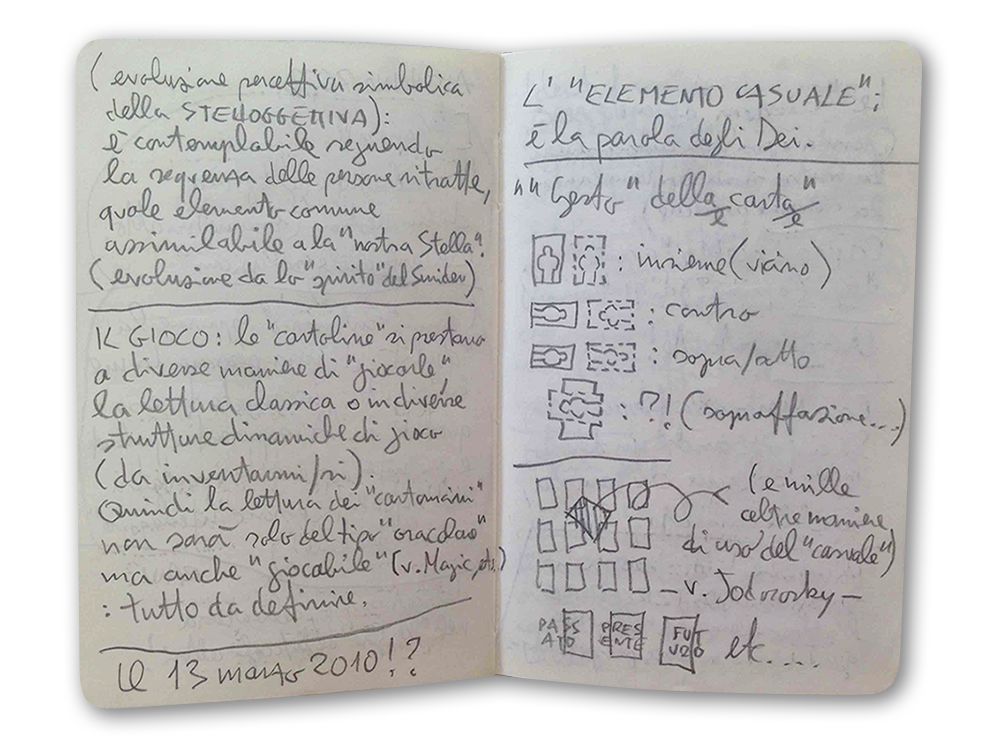 ( evoluzione percettiva simbolica
della STELLOGGETTIVA):
è contemplabile seguendo
la sequenza delle persone ritratte,
quale elemento comune
assimilabile a la "nostra Stella".
(evoluzione da lo "spirito" del
IL GIOCO: le "cartoline" si prestano
a diverse maniere di "giocarle",
la lettura classica o in diverse
strutture dinamiche di gioco
(da inventarmi/si).
Quindi la lettura dei "cartomini"
non sarà solo del tipo "oracolare"
ma anche "giocabile" (v. Magic, etc.)
: tutto da definire.
Il 13 marzo 2010!?
L' "ELEMENTO CASUALE":
è la parola degli Dei.
"" Gesto " della/e carta/e "
: insieme (vicino)
: contro
: sopra/sotto
: ?! (sopraffazione...)
(e mille
altre maniere
di uso del "casuale")
– v. Jodorosky –
PASSATO PRESENTE FUTURO etc....